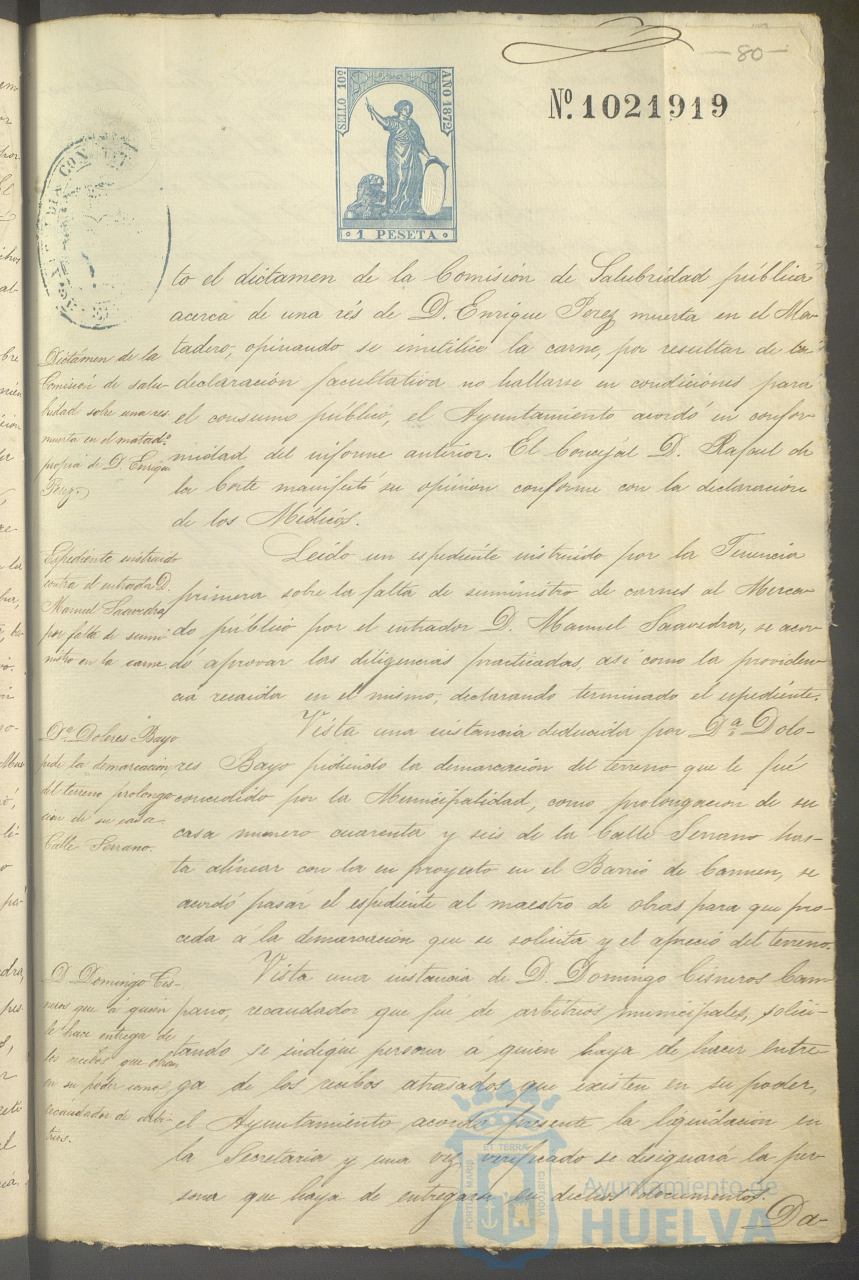 80
SELLO 10º
AÑO 1872
Nº. 1021919
1 PESETA
to el dictamen de la Comisión de Salubridad publica
acerca de una rés de D. Enrique Perez muerta en el Ma-
tadero, opinando se inutilice la carne, por resultar de la
declaración facultativa no hallarse en condiciones para
el consumo público, el Ayuntamiento acordó en confor-
midad del informe anterior. El Concejál D. Rafael de
la Corte manifestó su opinion conforme con la declaración
de los Médicos.
Dictámen de la
Comisión de salu-
bridad sobre una res
muerta en el matadº.
propia de D. Enrique
Perez.
Leido un espediente instruido por la Tenencia
primera sobre la falta de suministro de carnes al Merca-
do público por el entrador D. Manuel Saavedra, se acor-
dó aprovar las diligencias practicadas, así como la providen-
cia recaida en el mismo, declarando terminado el espediente.
Espediente instruido
contra el entrador D.
Manuel Saavedra
por falta de sumi-
nistro en la carne.
Vista una instancia deducida por Dª. Dolo-
res Bayo pidiendo la demarcación del terreno que le fué
concedido por la Municipalidad, como prolongacion de su
casa numero cuarenta y seis de la Calle Serrano has-
ta alinear con la en proyecto en el Barrio de Carmen, se
acordó pasár el espediente al maestro de obras para que pro-
ceda á la demarcación que se solicita y el aprecio del terreno.
Dª. Dolores Bayo
pide la demarcación
del terreno prolonga-
cion de su casa
Calle Serrano.
Vista una instancia de D. Domingo Cisneros Cam-
pano, recaudador que fué de arbitrios municipales, solici-
tando se indique persona á quien haya de hacer entre-
ga de los recibos atrasados que existen en su poder,
el Ayuntamiento acordó presente la liquidacion en
la Secretaría y una vez verificado se designará la per-
sona que haya de entregarse en dichos documentos.
Da-
D. Domingo Cis-
neros que á quien
le hace entrega de
los recibos que obran
en su poder como
recaudador de arbi-
trios.
ET TERRAE
PORTUS MARIS
CUSTODIA
Ayuntamiento de
HUELVA